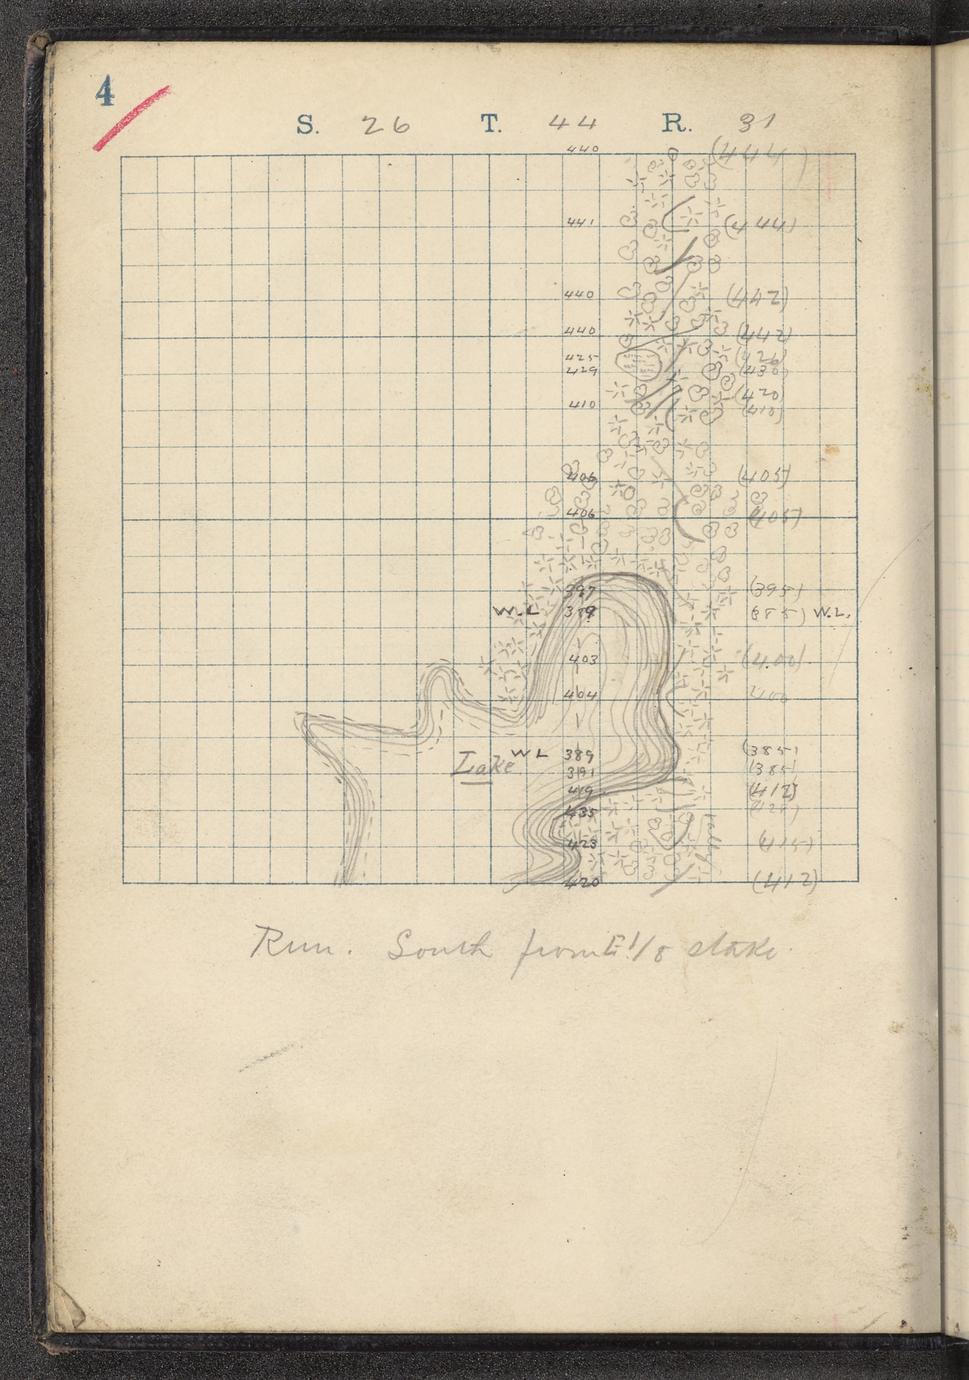 4
S. 26 T. 44 R. 31
440 (444)
441 (444)
440 (442)
440 (442)
425 (426)
429 (430)
(420)
410 (410)
406 (405)
406 (405)
397 (395)
W.L. 389 (385) W.L.
403 (400)
404 400
W L 389 (385)
Lake
391 (385)
419 (412)
435
423 (415)
420 (412)
Run. South from E 1/8 stake.